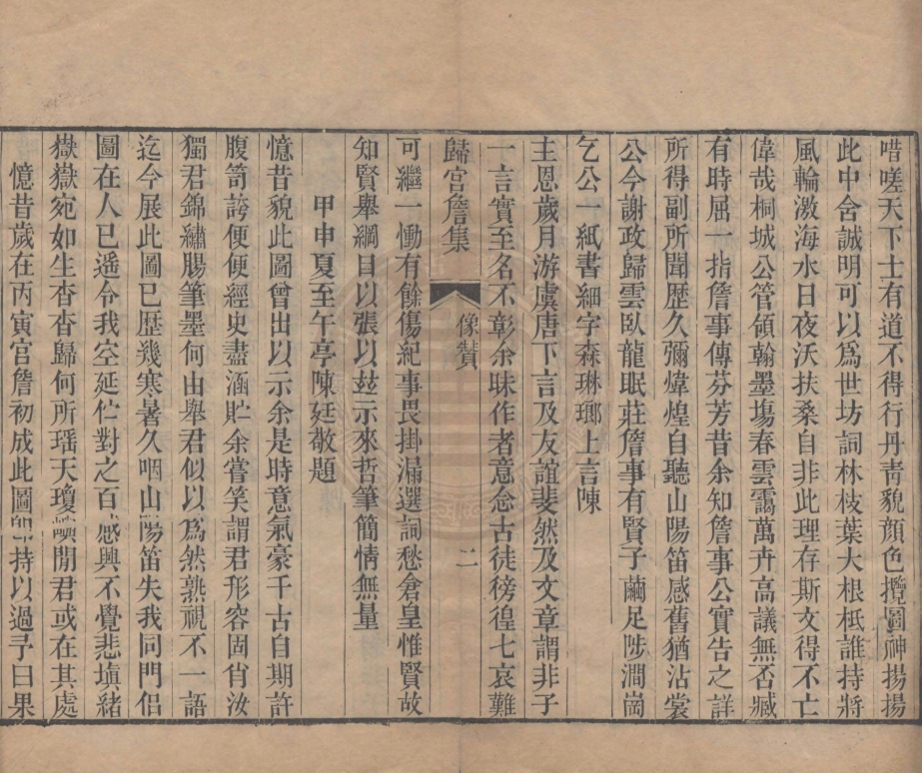 唶嗟天下士有道不得行丹靑貌顏色攬圖神揚揚
此中舍誠明可以爲世坊詞林枝葉大根柢誰持將
風輪激海水日夜沃扶桑自非此理存斯文得不亡
偉哉桐城公管領翰墨塲春雲靄萬卉高議無否臧
有時屈一指詹事傳芬芳昔余知詹事公實告之詳
所得副所聞歷久彌煒煌自聽山陽笛感舊猶沾裳
公今謝政歸雲臥龍眠莊詹事有賢子繭足陟澗崗
乞公一紙書細字森琳瑯上言陳
主恩歲月游虞唐下言及友誼斐然及文章謂非子
一言實至名不彰余昧作者意念古徒徬徨七哀難
歸宮詹集 像贊 二
可繼一慟有餘傷紀事畏掛漏選詞愁倉皇惟賢故
知賢舉綱目以張以玆示來哲筆簡情無量
甲申夏至午亭陳廷敬題
憶昔貌此圖曾出以示余是時意氣豪千古自期許
腹笥誇便便經史盡涵貯余嘗笑謂君形容固肖汝
獨君錦繡腸筆墨何由舉君似以爲然熟視不一語
迄今展此圖已歷幾寒暑久咽山陽笛失我同門侶
圖在人已遙令我空延伫對之百感興不覺悲塡緒
嶽嶽宛如生杳杳歸何所瑶天瓊嶼閒君或在其處
憶昔歲在丙寅宮詹初成此圖卽持以過予曰果